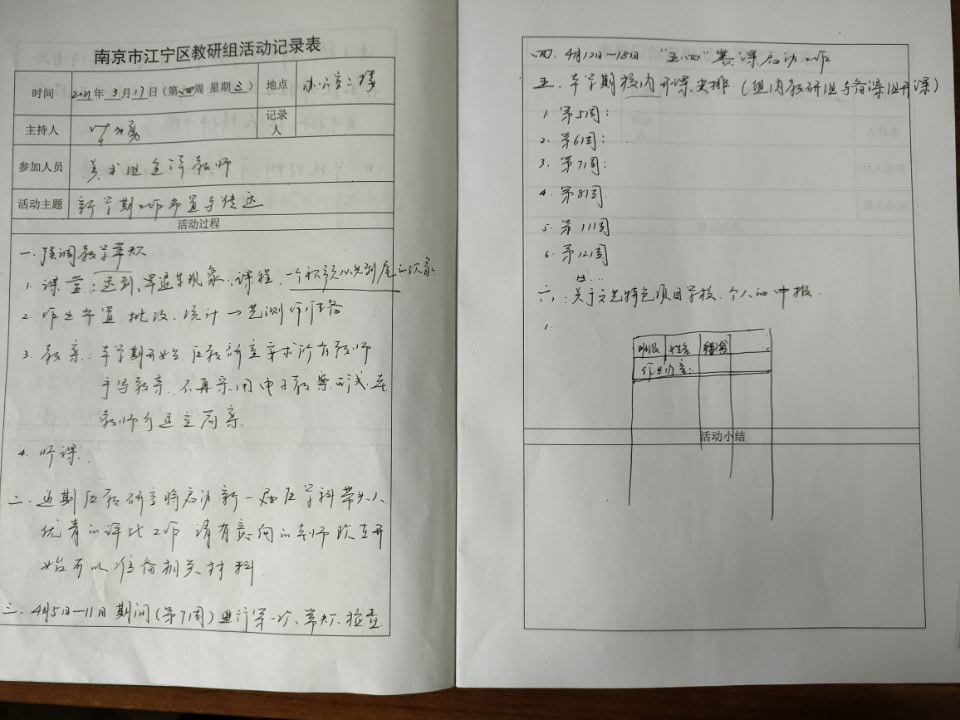 南京市江宁区教研组活动记录表
时间 2021年3月17日(第四周 星期三) 地点 办公室三楼
主持人 记录人
参加人员 美术组全体教师
活动主题 新学期工作布置与传达
活动过程
一. 强调教学常规
1. 课堂: 迟到、早退等现象、课程.
2. 作业布置、批改、统计 → 艺测
3. 教案: 本学期开始, 区教研室要求所有教师
手写教案, 不再采用电子教案形式, 老
教师可适当
4. 听课.
二. 近期区教研室将启动新一届区学科带头人、
优青的评比工作, 请有意向的老师现在开
始可以准备相关材料
三. 4月5日—11日期间(第7周)进行第一次常规检查
四. 4月12日—18日 "五四"赛课启动工作
五. 本学期校内开课安排 (组内教研组与备课组开课)
1. 第5周:
2. 第6周:
3. 第7周:
4. 第8周
5. 第11周
6. 第12周
六. 关于文艺特色项目学校、个人的申报.
1.
班级 姓名
作业内容:
活动小结